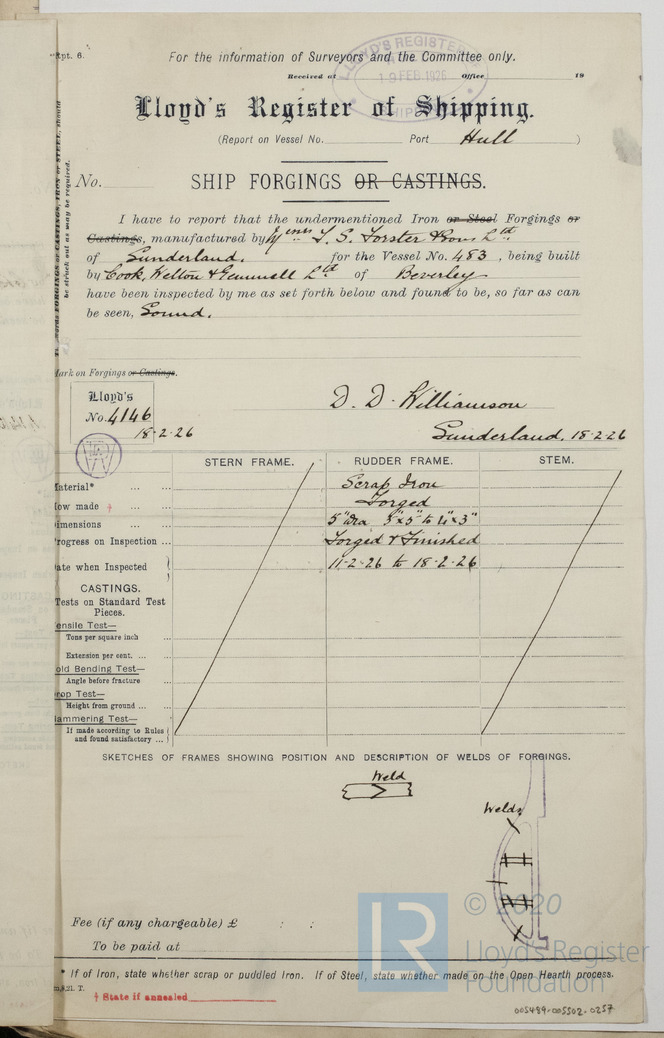 Rpt. 6.
For the information of Surveyors and the Committee only.
Received at Office 19
LLOYD'S REGISTER OF
19 FEB 1926
SHIPPING
Lloyd's Register of Shipping.
(Report on Vessel No. Port Hull )
No.
SHIP FORGINGS OR CASTINGS.
FORGINGS OR CASTINGS, IRON OR STEEL, should
be struck out as may be required.
I have to report that the undermentioned Iron or Steel Forgings or
Castings, manufactured by Messrs T. S. Forster & Sons Ltd
of Sunderland. for the Vessel No. 483, being built
by Cook, Welton & Gemmell Ltd of Beverley
have been inspected by me as set forth below and found to be, so far as can
be seen, Sound.
Mark on Forgings or Castings.
Lloyd's
No. 4146
18-2-26
D. D. Williamson
Sunderland, 18-2-26
STERN FRAME. RUDDER FRAME. STEM.
Material* ... ... Scrap Iron
How made † ... ... Forged
Dimensions ... ... 5" dia 3"x5" to 4"x3"
Progress on Inspection ... Forged & Finished
Date when Inspected 11-2-26 to 18-2-26
CASTINGS.
Tests on Standard Test
Pieces.
Tensile Test—
Tons per square inch ...
Extension per cent. ... ...
Cold Bending Test—
Angle before fracture ...
Drop Test—
Height from ground ... ...
Hammering Test—
If made according to Rules
and found satisfactory ...
SKETCHES OF FRAMES SHOWING POSITION AND DESCRIPTION OF WELDS OF FORGINGS.
Weld
Welds
Fee (if any chargeable) £ : :
To be paid at
* If of Iron, state whether scrap or puddled Iron. If of Steel, state whether made on the Open Hearth process.
21. T.
† State if annealed
© 2020
Lloyd's Register
Foundation
LR
005489-005502-0257